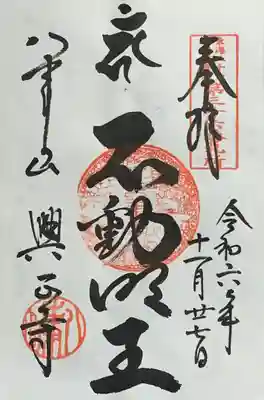 奉拝
令和六年
十一月廿七日
不動明王
八事山
興正寺